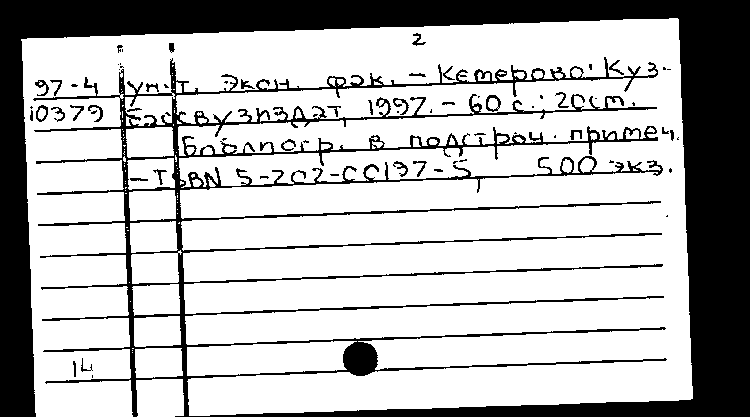 2
97-4 ун-т. Экон. фак. - Кемерово: Куз-
10379 бассвузиздат, 1997. - 60 с.; 20 см.
Библиогр. в подстроч. примеч.
- ISBN 5-202-00197-5, 500 экз.
14